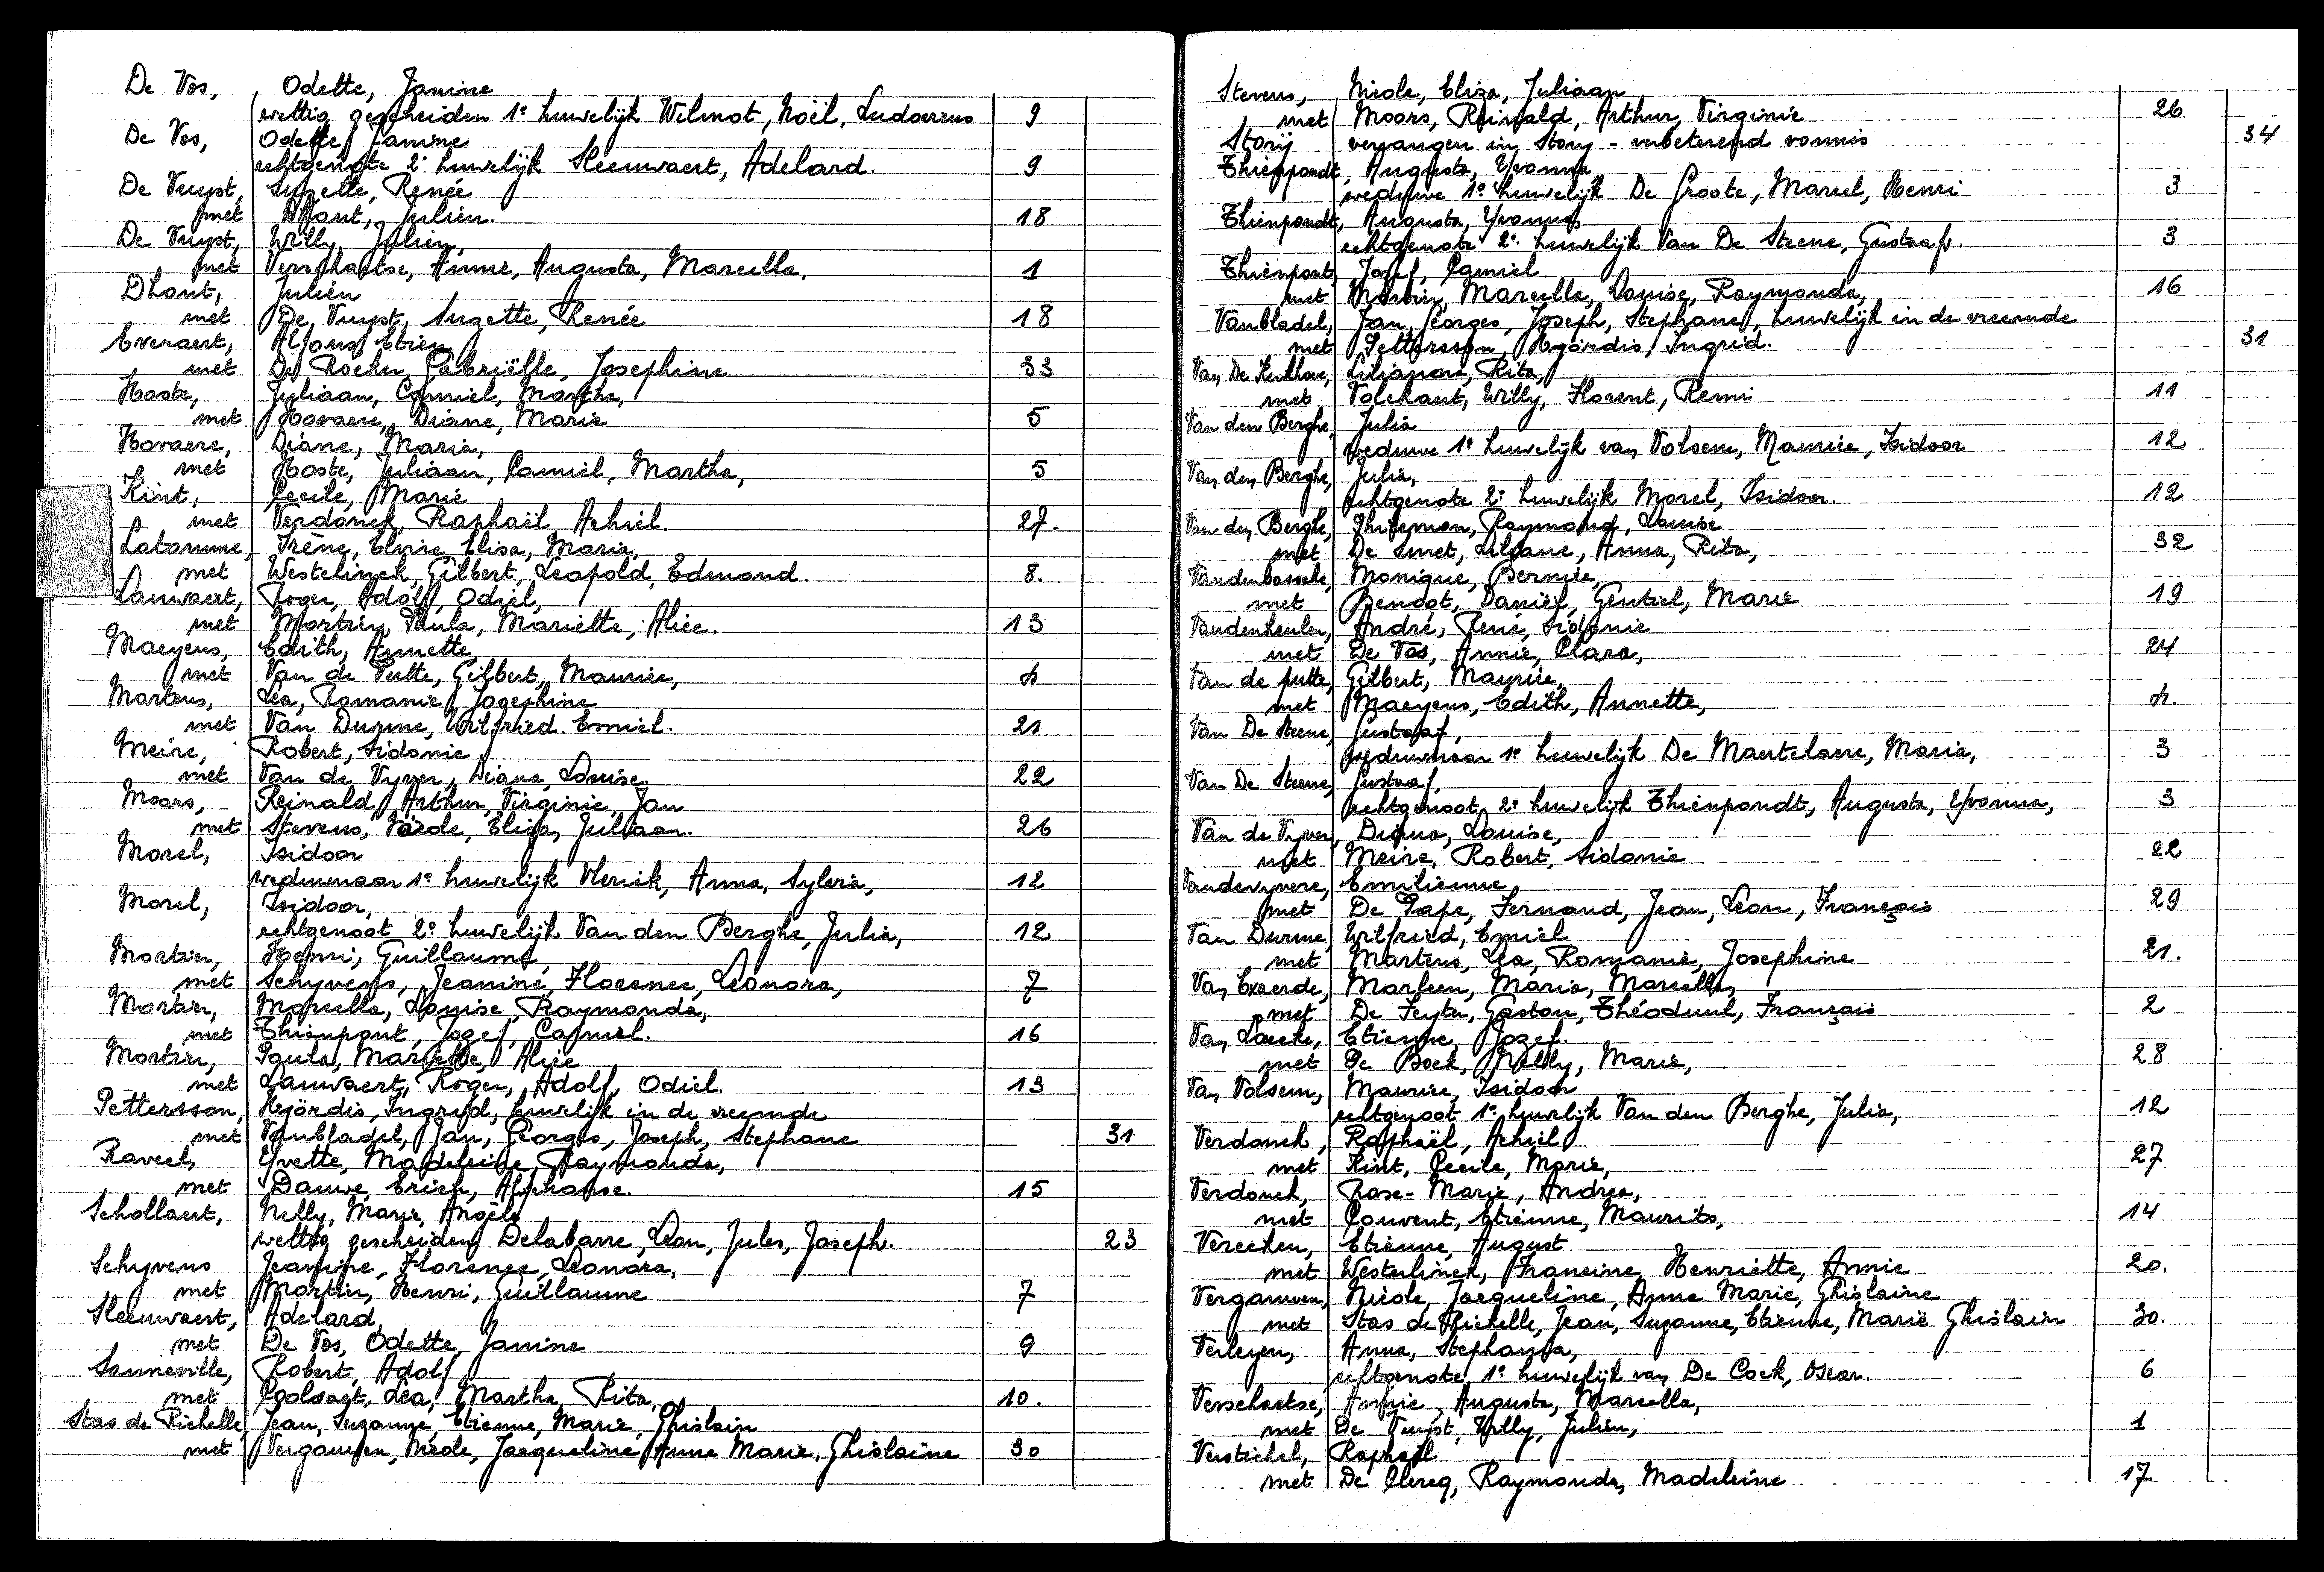 De Vos, Odette, Janine
wettig gescheiden 1e huwelijk Wilmot, Noël, Ludovicus 9
De Vos, Odette, Janine
echtgenote 2e huwelijk Sleeuwaert, Adelard. 9
De Vuyst, Suzette, Renée
met Dhont, Julien. 18
De Vuyst, Willy, Julien,
met Verschaetse, Annie, Augusta, Marcella, 1
Dhont, Julien
met De Vuyst, Suzette, Renée 18
Everaert, Alfons, Etien
met De Rocker, Gabriëlle, Josephine 33
Hoste, Juliaan, Camiel, Martha,
met Hovaere, Diane, Marie 5
Hovaere, Diane, Maria,
met Hoste, Juliaan, Camiel, Martha, 5
Kint, Cecile, Marie
met Verdonck, Raphaël, Achiel. 27.
Latomme, Irène, Elvire Elisa, Maria,
met Westelinck, Gilbert, Leopold, Edmond. 8.
Lauwaert, Roger, Adolf, Odiel,
met Mortier, Paula, Mariette, Alice. 13
Maeyens, Edith, Annette,
met Van de Putte, Gilbert, Maurice, 4
Martens, Lea, Romanie, Josephine
met Van Durme, Wilfried. Emiel. 21
Meire, Robert, Sidonie
met Van de Vyver, Diana, Louise. 22
Moors, Reinald, Arthur, Virginie, Jan
met Stevens, Nicole, Eliza, Juliaan. 26
Morel, Isidoor
weduwnaar 1e huwelijk Vlerick, Anna, Sylvia, 12
Morel, Isidoor,
echtgenoot 2e huwelijk Van den Berghe, Julia, 12
Mortier, Henri, Guillaume,
met Schyvens, Jeanine, Florence, Leonora, 7
Mortier, Marcella, Louise, Raymonda,
met Thienpont, Jozef, Camiel. 16
Mortier, Paula, Mariette, Alice
met Lauwaert, Roger, Adolf, Odiel. 13
Pettersson, Hyördis, Ingrid, huwelijk in de vreemde
met Vanbladel, Jan, Georges, Joseph, Stephane 31
Raveel, Yvette, Madeleine, Raymonda,
met Dauwe, Erich, Alphonse. 15
Schollaert, Nelly, Marie, Angèle
wettig gescheiden Delabarre, Leon, Jules, Joseph. 23
Schyvens Jeanine, Florence, Leonora,
met Mortier, Henri, Guillaume 7
Sleeuwaert, Adelard,
met De Vos, Odette, Janine 9
Sonneville, Robert, Adolf
met Coolsaet, Lea, Martha, Rita, 10.
Stas de Richelle, Jean, Suzanne, Etienne, Marie, Ghislain
met Vergauwen, Nicole, Jacqueline, Anne Marie, Ghislaine 30
Stevens, Nicole, Eliza, Juliaan
met Moors, Reinald, Arthur, Virginie 26
Storij vervangen in Story - verbeterend vonnis 34
Thienpondt, Augusta, Yvonna,
weduwe 1e huwelijk De Groote, Marcel, Henri 3
Thienpondt, Augusta, Yvonna,
echtgenote 2e huwelijk Van De Steene, Gustaaf. 3
Thienpont, Jozef, Camiel
met Mortier, Marcella, Louise, Raymonda, 16
Vanbladel, Jan, Georges, Joseph, Stephane, huwelijk in de vreemde
met Pettersson, Hyördis, Ingrid. 31
Van De Kerkhove, Lilianne, Rita,
met Volckaert, Willy, Florent, Remi 11
Van den Berghe, Julia
weduwe 1e huwelijk van Volsem, Maurice, Isidoor 12
Van den Berghe, Julia,
echtgenote 2e huwelijk Morel, Isidoor. 12
Van den Berghe, Raymond, Louise
met De Smet, Liliane, Anna, Rita, 32
Vandenbossche, Monique, Bernice,
met Benoot, Daniël, Gentiel, Marie 19
Vandenheulen, André, René, Sidonie
met De Vos, Annie, Clara, 24
Van de putte, Gilbert, Maurice,
met Maeyens, Edith, Annette, 4.
Van De Steene, Gustaaf,
weduwnaar 1e huwelijk De Maertelaere, Maria, 3
Van De Steene, Gustaaf,
echtgenoot 2e huwelijk Thienpondt, Augusta, Yvonna, 3
Van de Vyver, Diana, Louise,
met Meire, Robert, Sidonie 22
Vandevyvere, Emilienne
met De Pape, Fernand, Jean, Leon, François 29
Van Durme, Wilfried, Emiel
met Martens, Lea, Romanie, Josephine 21.
Van Exaerde, Marleen, Maria, Marcella,
met De Feyter, Gaston, Théoduul, François 2
Van Laecke, Etienne, Jozef.
met De Bock, Nelly, Marie, 28
Van Volsem, Maurice, Isidoor
echtgenoot 1e huwelijk Van den Berghe, Julia, 12
Verdonck, Raphaël, Achiel
met Kint, Cecile, Marie, 27
Verdonck, Rose-Marie, Andrea,
met Couvent, Etienne, Maurits, 14
Vereecken, Etienne, August
met Westelinck, Francine, Henriëtte, Annie 20.
Vergauwen, Nicole, Jacqueline, Anne Marie, Ghislaine
met Stas de Richelle, Jean, Suzanne, Etienne, Marie Ghislain 30.
Verleyen, Anna, Stephania,
echtgenote 1e huwelijk van De Cock, Oscar. 6
Verschaetse, Annie, Augusta, Marcella,
met De Vuyst, Willy, Julien, 1
Verstichel, Raphaël.
met De Clercq, Raymonda, Madeleine 17